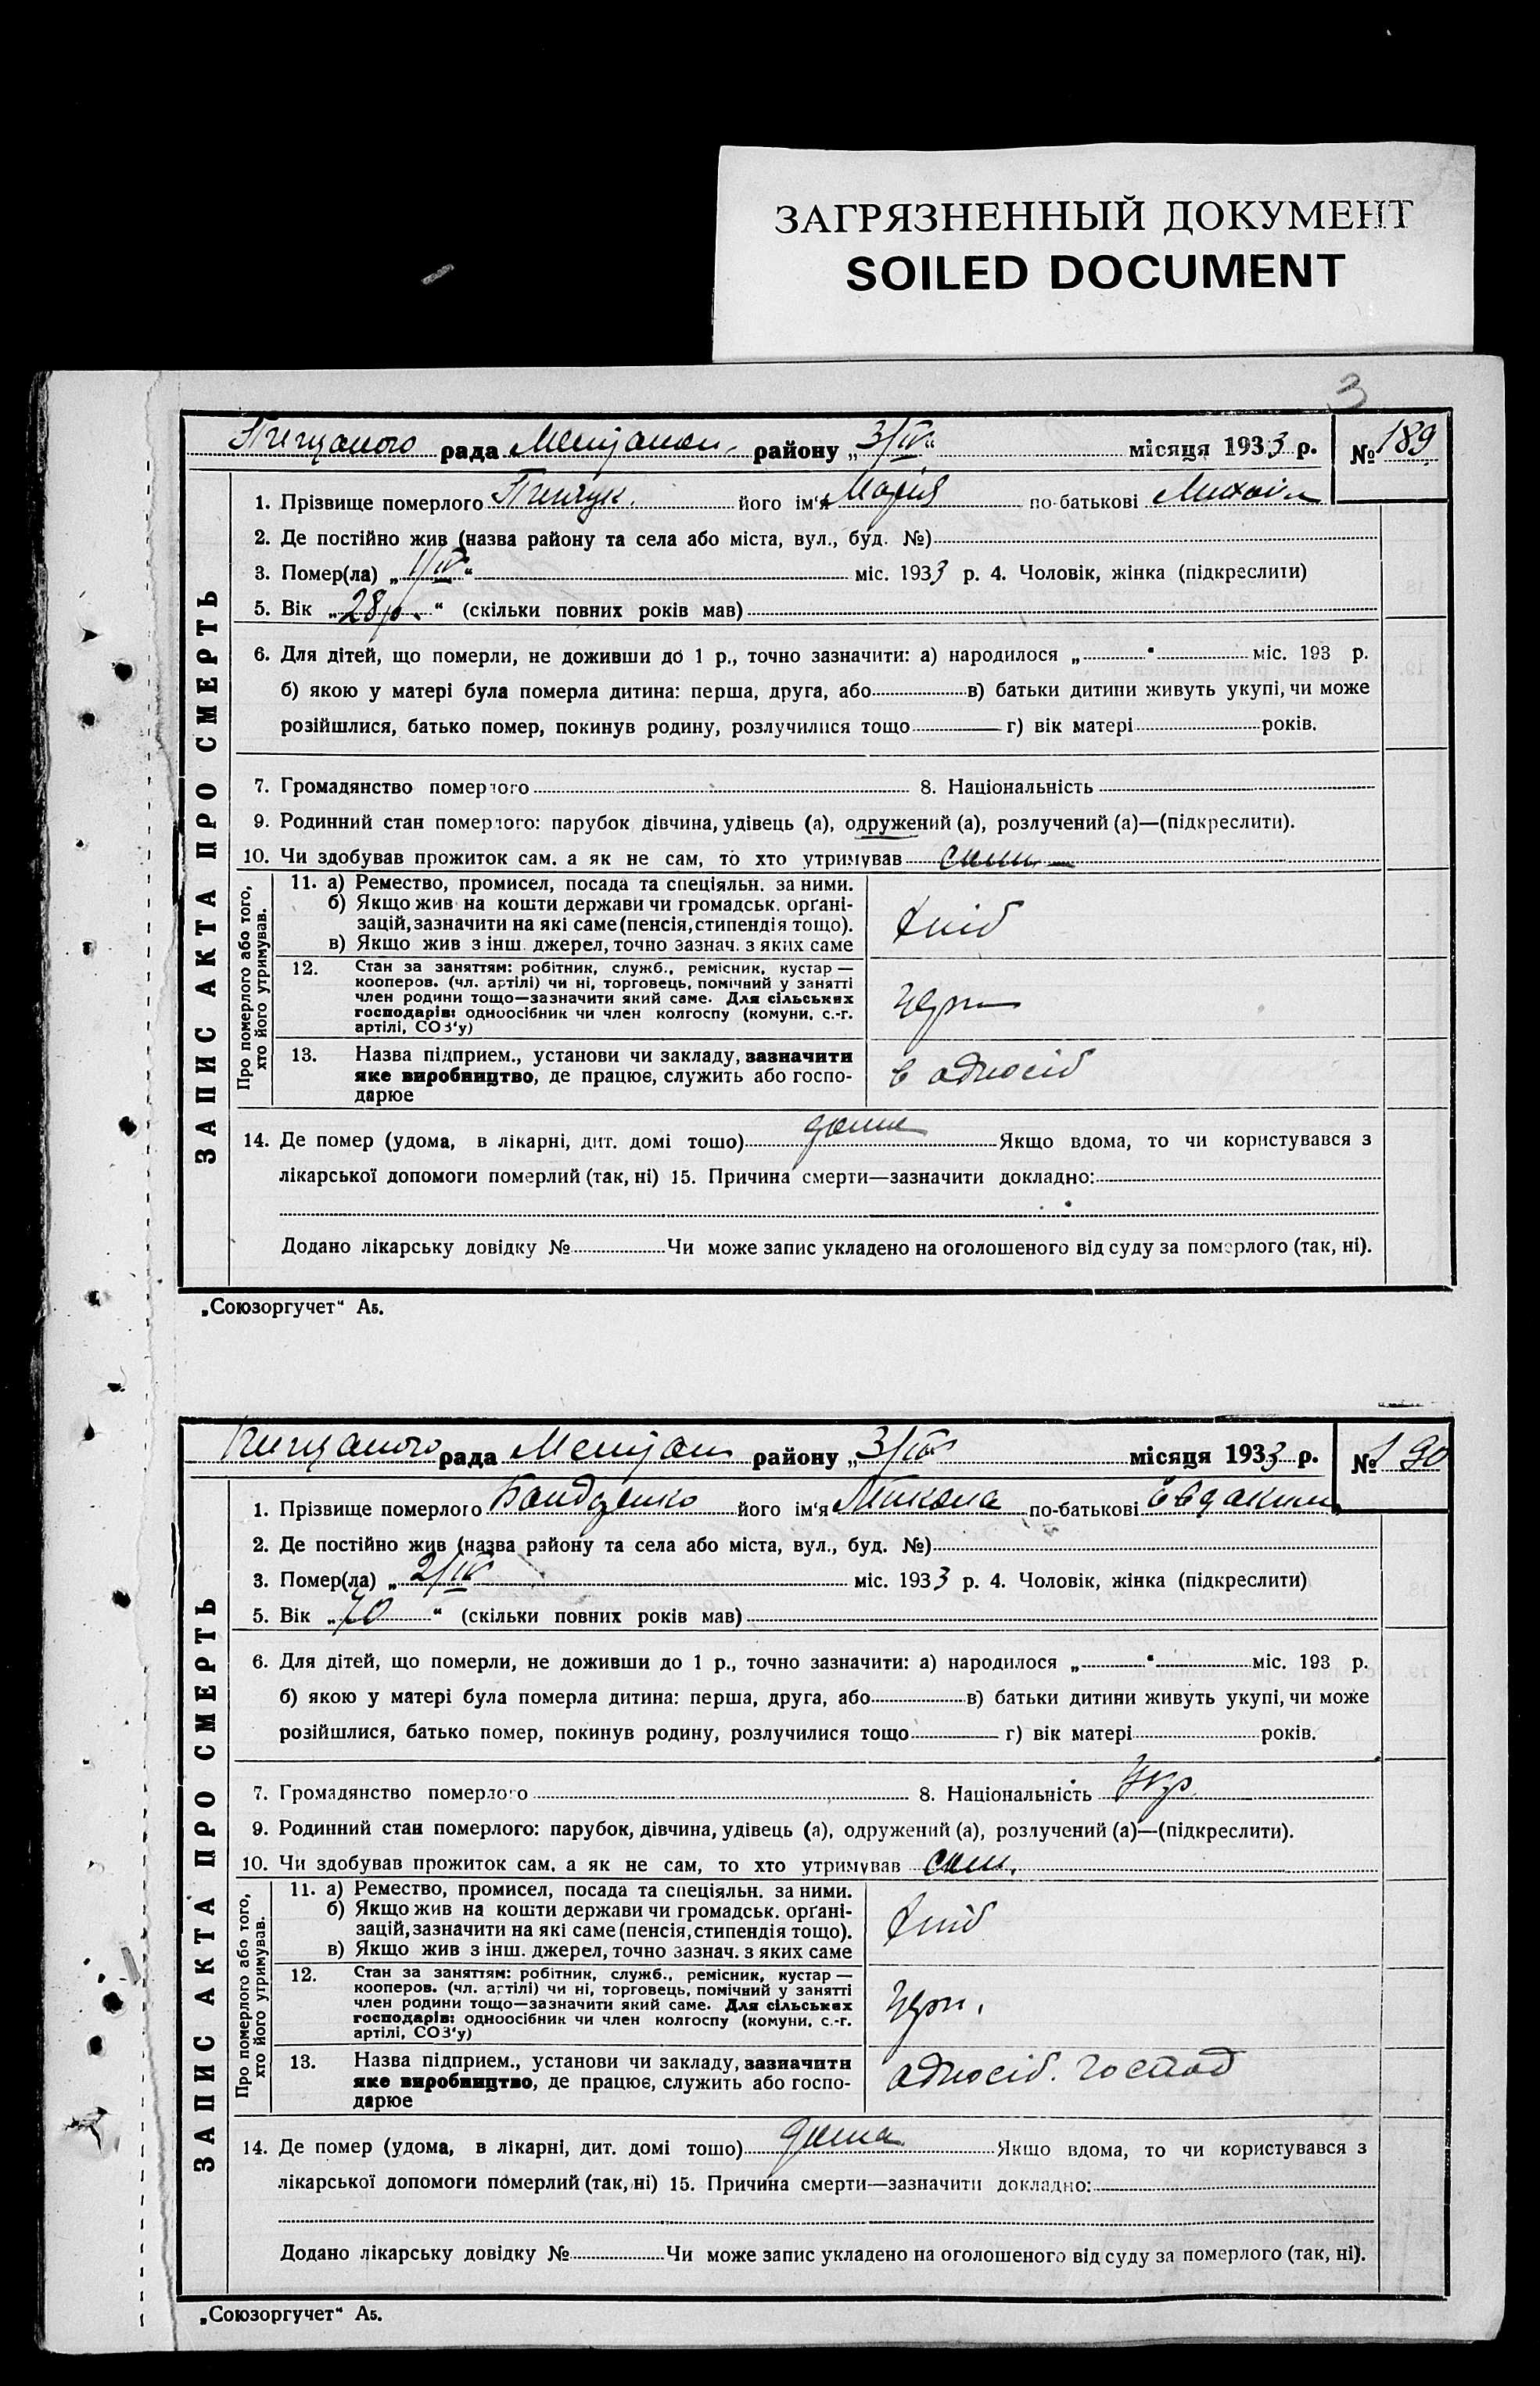 ЗАГРЯЗНЕННЫЙ ДОКУМЕНТ
SOILED DOCUMENT
3
рада району „3/IV“ місяця 1933 р. № 189
1. Прізвище померлого його ім'я Марія по-батькові Михайл
2. Де постійно жив (назва району та села або міста, вул., буд. №)
3. Помер(ла) „1/IV“ міс. 1933 р. 4. Чоловік, жінка (підкреслити)
5. Вік „28 р.“ (скільки повних років мав)
6. Для дітей, що померли, не доживши до 1 р., точно зазначити: а) народилося „ “ міс. 193 р.
б) якою у матері була померла дитина: перша, друга, або в) батьки дитини живуть укупі, чи може
розійшлися, батько помер, покинув родину, розлучилися тощо г) вік матері років.
7. Громадянство померлого 8. Національність
9. Родинний стан померлого: парубок, дівчина, удівець (а), одружений (а), розлучений (а)—(підкреслити).
10. Чи здобував прожиток сам, а як не сам, то хто утримував
ЗАПИС АКТА ПРО СМЕРТЬ
Про померлого або того,
хто його утримував.
11. а) Ремество, промисел, посада та спеціяльн. за ними.
б) Якщо жив на кошти держави чи громадськ. орґані-
зацій, зазначити на які саме (пенсія, стипендія тощо).
в) Якщо жив з інш. джерел, точно зазнач. з яких саме
хліб
12. Стан за заняттям: робітник, служб., ремісник, кустар —
кооперов. (чл. артілі) чи ні, торговець, помічний у занятті
член родини тощо—зазначити який саме. Для сільських
господарів: одноосібник чи член колгоспу (комуни, с.-г.
артілі, СОЗ'у)
13. Назва підприєм., установи чи закладу, зазначити
яке виробництво, де працює, служить або госпо-
дарює
в односіб
14. Де помер (удома, в лікарні, дит. домі тощо) дома Якщо вдома, то чи користувався з
лікарської допомоги померлий (так, ні) 15. Причина смерти—зазначити докладно:
Додано лікарську довідку № Чи може запис укладено на оголошеного від суду за померлого (так, ні).
„Союзоргучет“ А5.
рада району „3/IV“ місяця 1933 р. № 190
1. Прізвище померлого його ім'я по-батькові Євдоким
2. Де постійно жив (назва району та села або міста, вул., буд. №)
3. Помер(ла) „2/IV“ міс. 1933 р. 4. Чоловік, жінка (підкреслити)
5. Вік „70“ (скільки повних років мав)
6. Для дітей, що померли, не доживши до 1 р., точно зазначити: а) народилося „ “ міс. 193 р.
б) якою у матері була померла дитина: перша, друга, або в) батьки дитини живуть укупі, чи може
розійшлися, батько помер, покинув родину, розлучилися тощо г) вік матері років.
7. Громадянство померлого 8. Національність Укр.
9. Родинний стан померлого: парубок, дівчина, удівець (а), одружений (а), розлучений (а)—(підкреслити).
10. Чи здобував прожиток сам, а як не сам, то хто утримував сам.
ЗАПИС АКТА ПРО СМЕРТЬ
Про померлого або того,
хто його утримував.
11. а) Ремество, промисел, посада та спеціяльн. за ними.
б) Якщо жив на кошти держави чи громадськ. орґані-
зацій, зазначити на які саме (пенсія, стипендія тощо).
в) Якщо жив з інш. джерел, точно зазнач. з яких саме
хліб
12. Стан за заняттям: робітник, служб., ремісник, кустар —
кооперов. (чл. артілі) чи ні, торговець, помічний у занятті
член родини тощо—зазначити який саме. Для сільських
господарів: одноосібник чи член колгоспу (комуни, с.-г.
артілі, СОЗ'у)
13. Назва підприєм., установи чи закладу, зазначити
яке виробництво, де працює, служить або госпо-
дарює
односіб. господ
14. Де помер (удома, в лікарні, дит. домі тощо) дома Якщо вдома, то чи користувався з
лікарської допомоги померлий (так, ні) 15. Причина смерти—зазначити докладно:
Додано лікарську довідку № Чи може запис укладено на оголошеного від суду за померлого (так, ні).
„Союзоргучет“ А5.